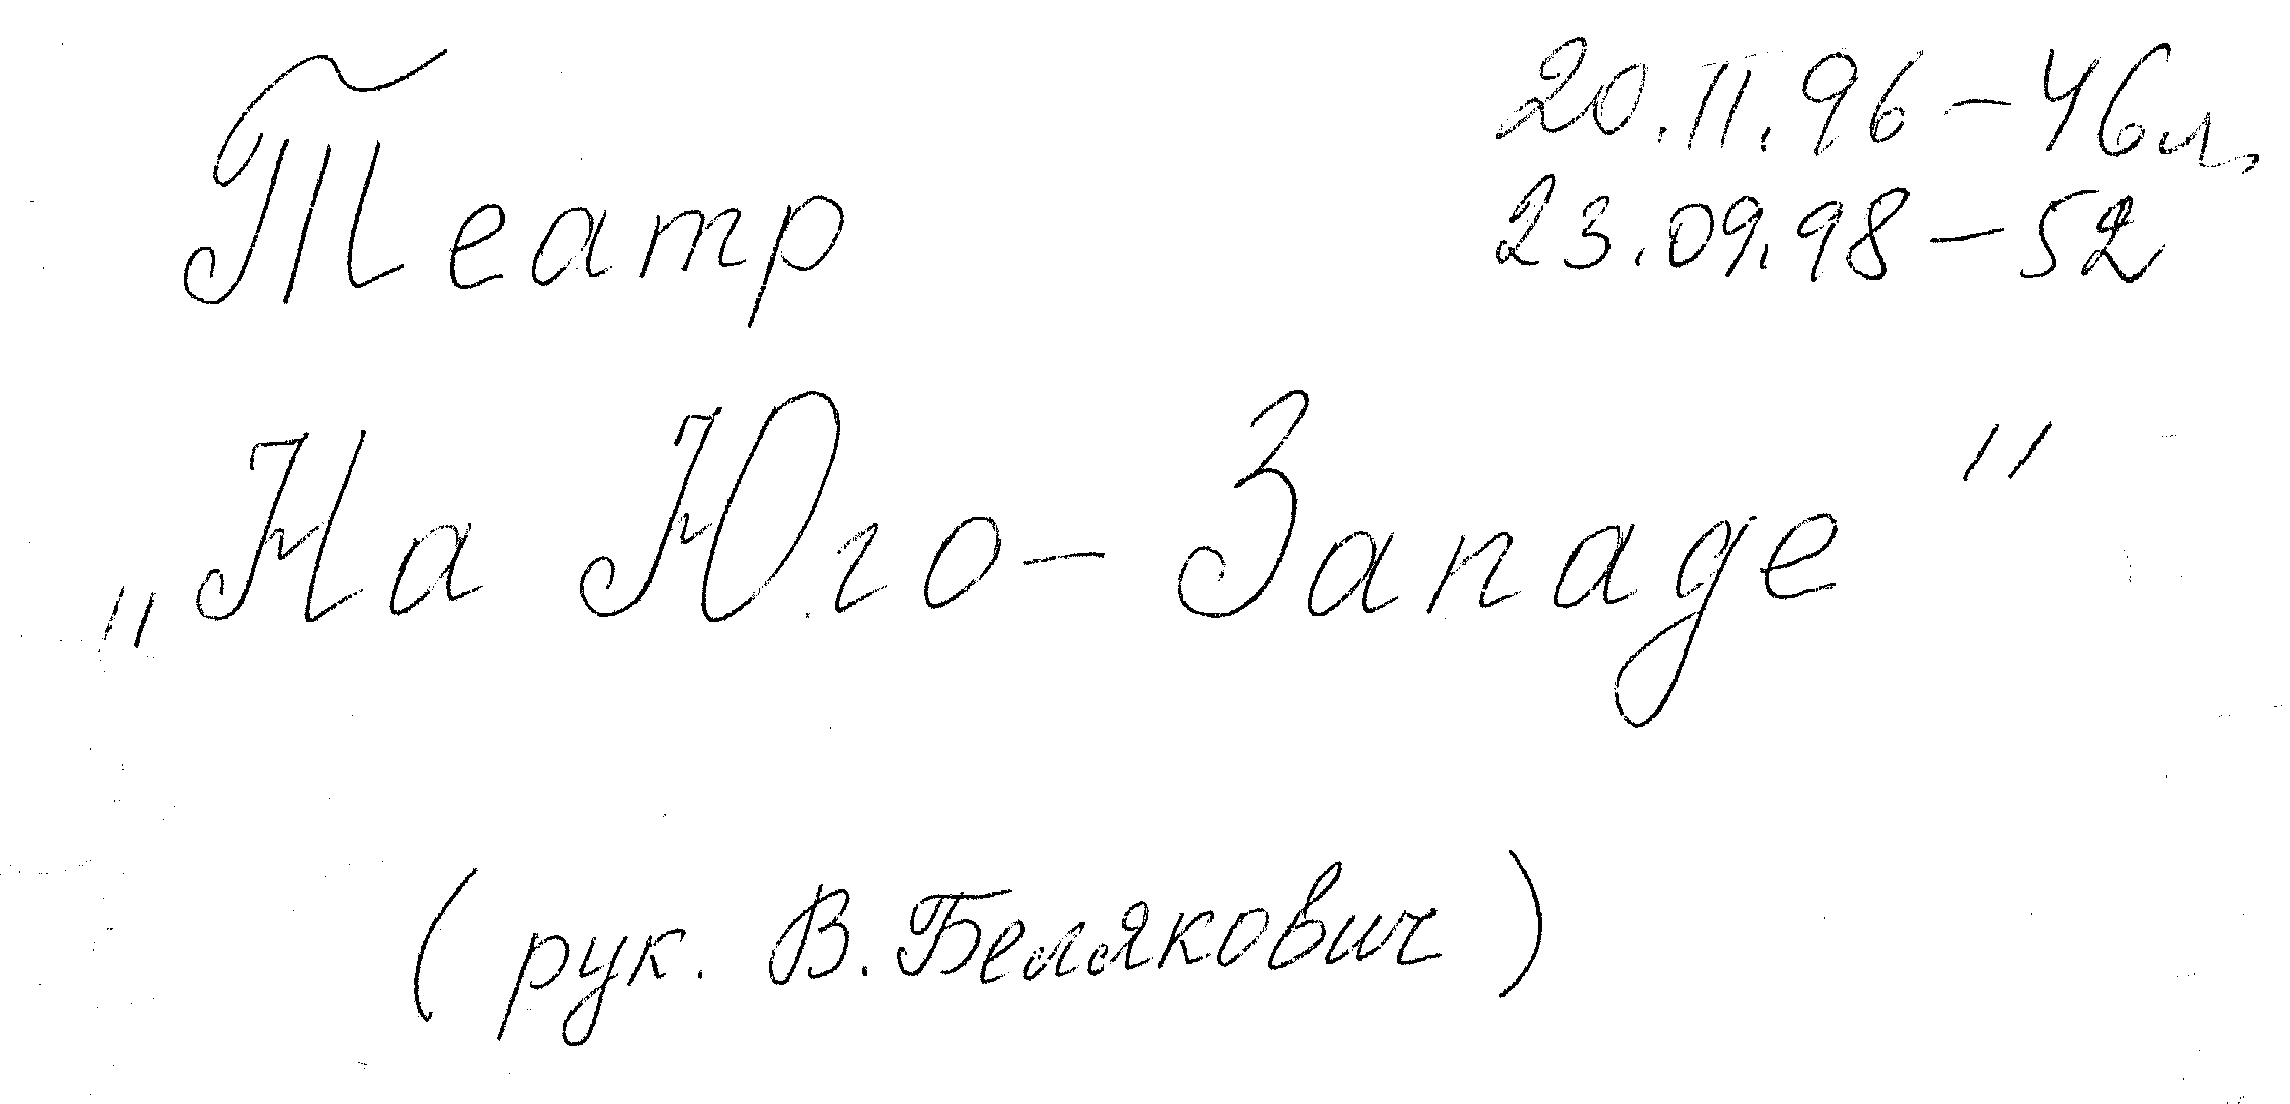 Театр
20.II.96 – 46л.
23.09.98 – 52
„На Юго-Западе"
(рук. В. Белякович)